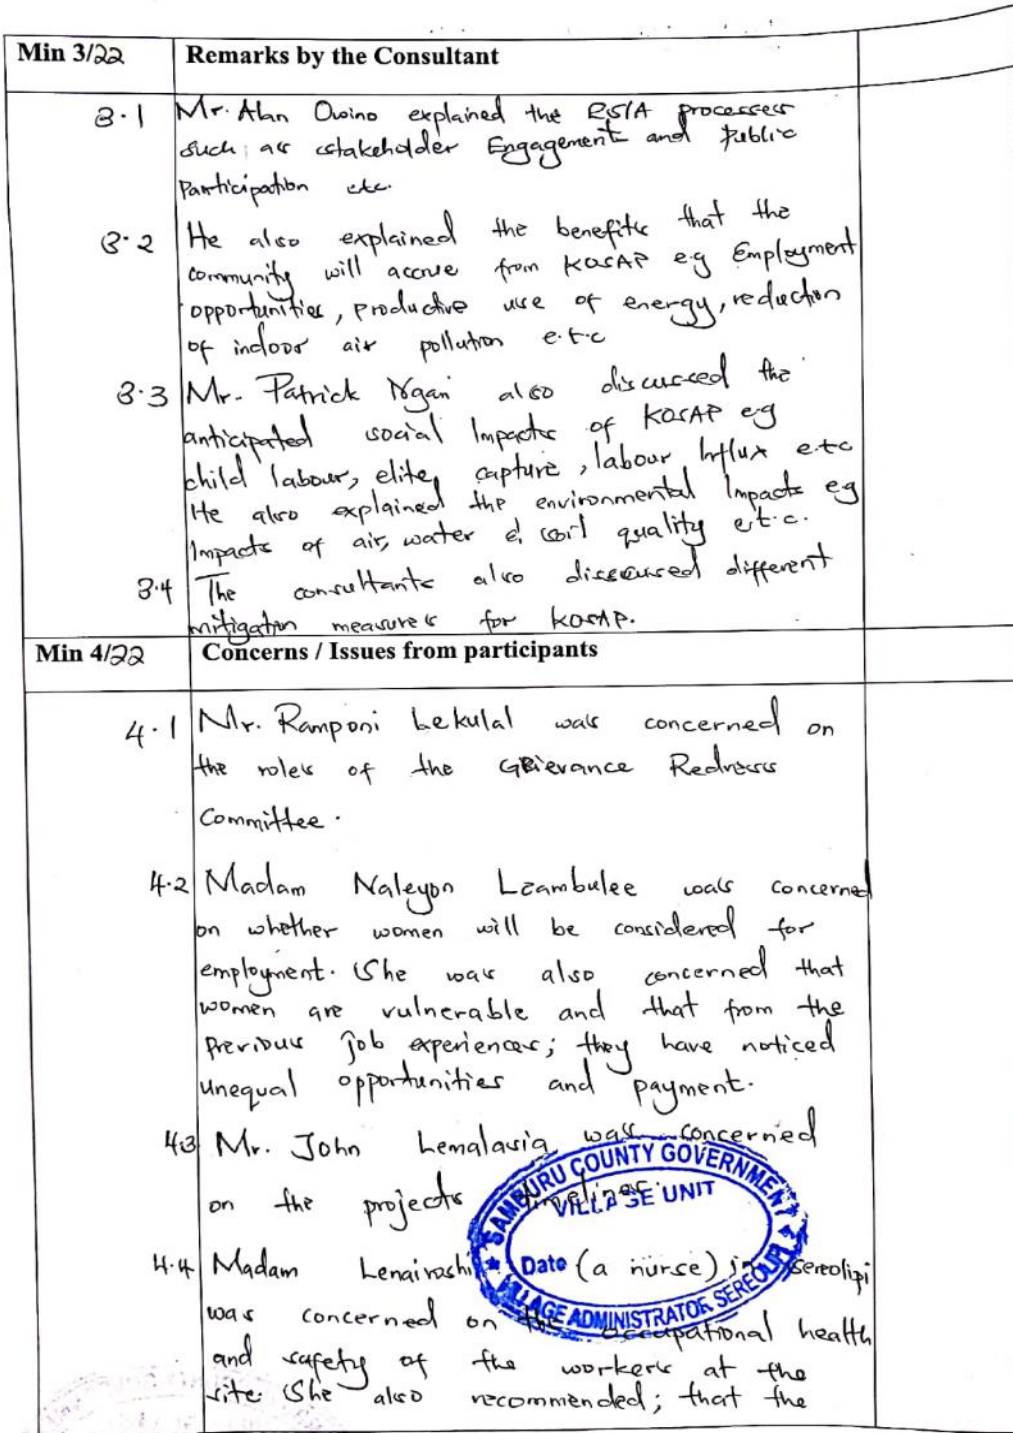 Min 3/22 Remarks by the Consultant
3.1 Mr. Alan Owino explained the ESIA processes
such as stakeholder Engagement and Public
Participation etc.
3.2 He also explained the benefits that the
community will accrue from KOSAP eg Employment
opportunities, productive use of energy, reduction
of indoor air pollution e.t.c
3.3 Mr. Patrick Ngari also discussed the
anticipated social Impacts of KOSAP eg
child labour, elite capture, labour Influx etc
He also explained the environmental Impacts eg
Impacts of air, water & soil quality e.t.c.
3.4 The consultants also discussed different
mitigation measures for KOSAP.
Min 4/22 Concerns / Issues from participants
4.1 Mr. Ramponi Lekulal was concerned on
the roles of the Grievance Redress
Committee.
4.2 Madam Naleyon Leambulee was concerned
on whether women will be considered for
employment. She was also concerned that
women are vulnerable and that from the
previous job experiences; they have noticed
unequal opportunities and payment.
4.3 Mr. John Lemalasia was concerned
on the projects timelines.
SAMBURU COUNTY GOVERNMENT
VILLAGE UNIT
Date
VILLAGE ADMINISTRATOR SEREOLIPI
4.4 Madam (a nurse) in Sereolipi
was concerned on the occupational health
and safety of the workers at the
site. She also recommended; that the